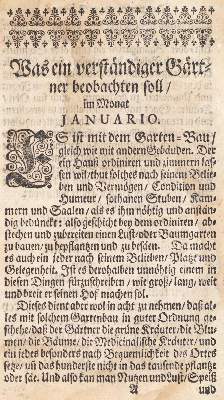 Was ein verständiger Gärt-
ner beobachten soll/
im Monat
JANUARIO.
ES ist mit dem Garten-Bau/
gleich wie mit andern Gebäuden. Der
ein Hauß ordiniren und zimmern las-
sen wil/thut solches nach seinem Belie-
ben und Vermögen/ Condition und
Humeur/ sothanen Stuben/ Kam-
mern und Saalen/ als es ihm nöthig und anstän-
dig beduncket: also geschicht bey dem ordiniren/ ab-
stechen und zubereiten einen Lust-oder Baumgarten
zu bauen/ zu bepflantzen und zu besäen. Da macht
es auch ein jeder nach seinem Belieben/ Platz und
Gelegenheit. Ist es derohalben unnöthig einem in
diesen Dingen fürzuschreiben/ wie groß/ lang/ weit
und breit er seinen Hof machen sol.
Dieses dient aber wol in acht zu nehmen/ daß al-
les mit solchem Gartenbau in guter Ordnung ge-
schehe/daß der Gärtner die grüne Kräuter/die Blu-
men/ die Bäume/ die Medicinalische Kräuter/ und
ein jedes besonders nach Bequemlichkeit des Ortes
setze/ un das hunderste nicht in das tausende pflantze
oder säe. Und also kan man Nutzen und Lust/Speiß
A und